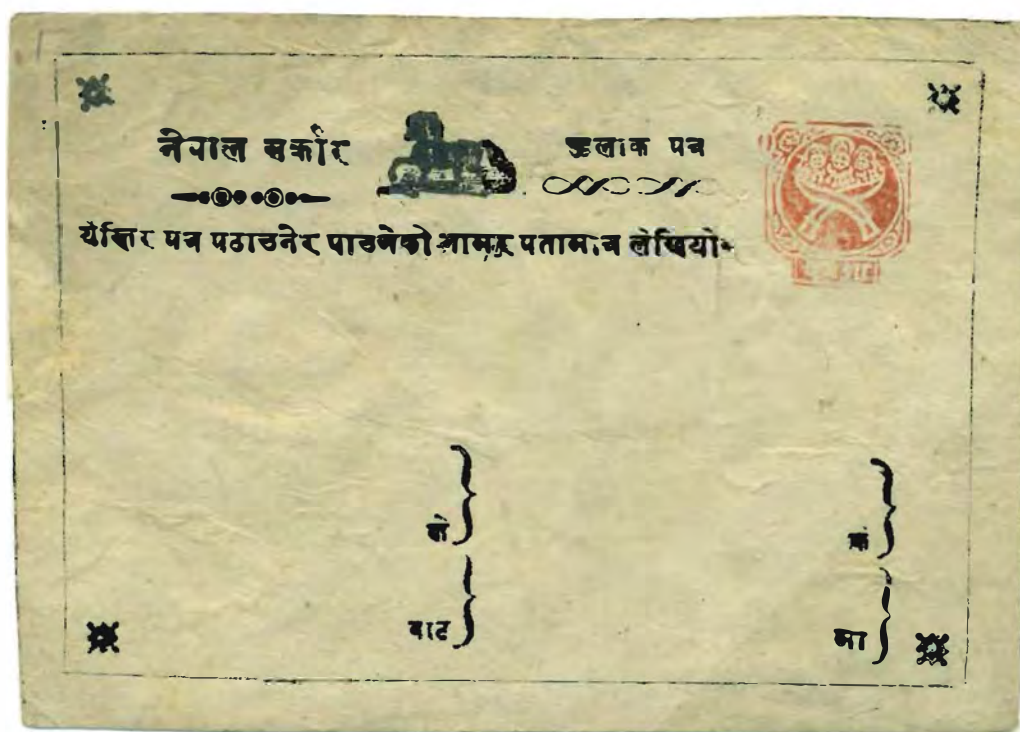 नेपाल सर्कार
हुलाक पत्र
पत्र पठाउनेर पाउनेको नामर पतामात्र लेखियो
को
बाट
मा